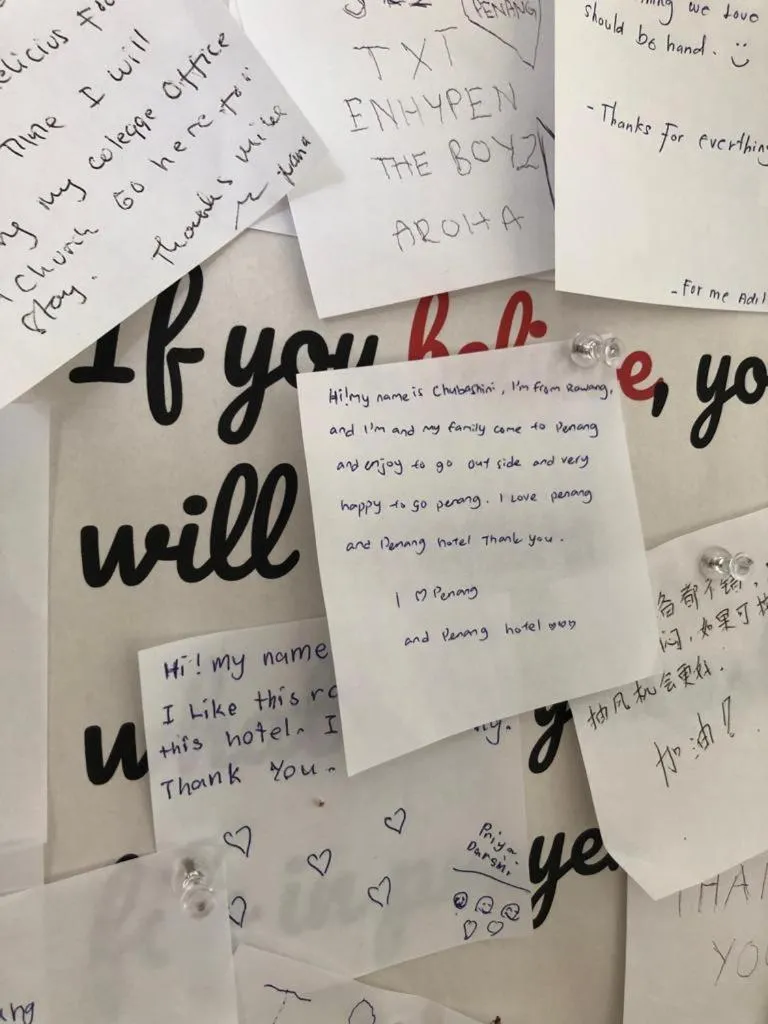 Time I will
my colegge office
Church Go here too
Stay.
Thanks
PENANG
TXT
ENHYPEN
THE BOYZ
AROHA
we love
should be hand. :)
- Thanks for everthing
- For me Adil
If you believe, yo
will
Hi! my name is Chubashini, I'm from Rawang,
and I'm and my family come to Penang
and enjoy to go out side and very
happy to go penang. I Love penang
and Penang hotel Thank you.
I ♡ Penang
and Penang hotel ♡♡♡
Hi! my name
I Like this ro
this hotel. I
Thank You.
Priya
Darsini
备都不错,
闷,如果可
抽风机会更好.
加油!
in your eyes
THAN
YO